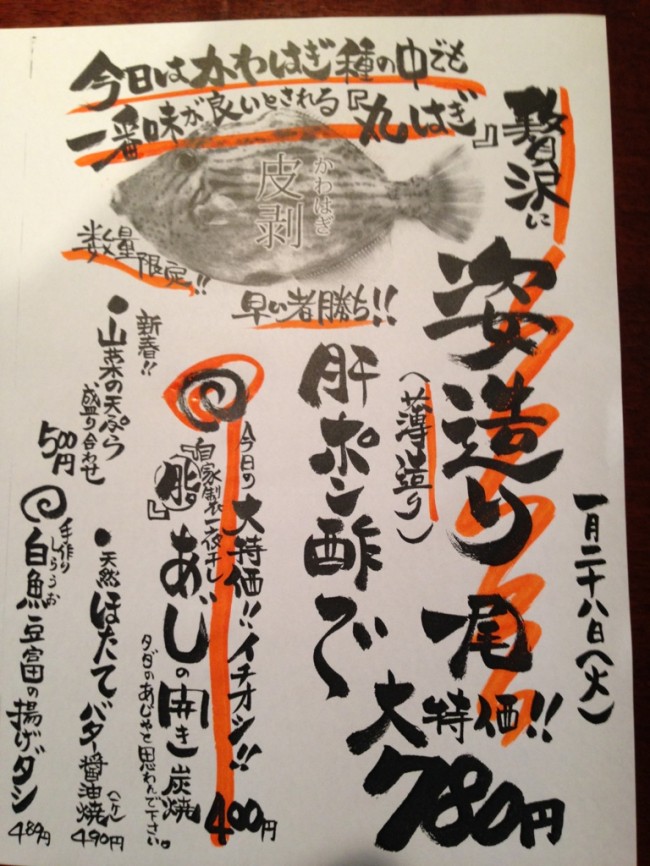 今日はかわはぎ種の中でも
一番味が良いとされる『丸はぎ』
贅沢に
皮剥
かわはぎ
数量限定!!
早い者勝ち!!
一月二十八日(火)
姿造り一尾
(薄造り)
大特価!!
780円
肝ポン酢で
今日の大特価!!イチオシ!!
自家製一夜干し
『脂』あじの開き炭焼
タダのあじやと思わんで下さい。
400円
新春!!
●山菜の天ぷら
盛り合わせ
500円
●天然ほたてバター醤油焼
(一ケ)
490円
手作り
しらうお
白魚豆富の揚げダシ
480円